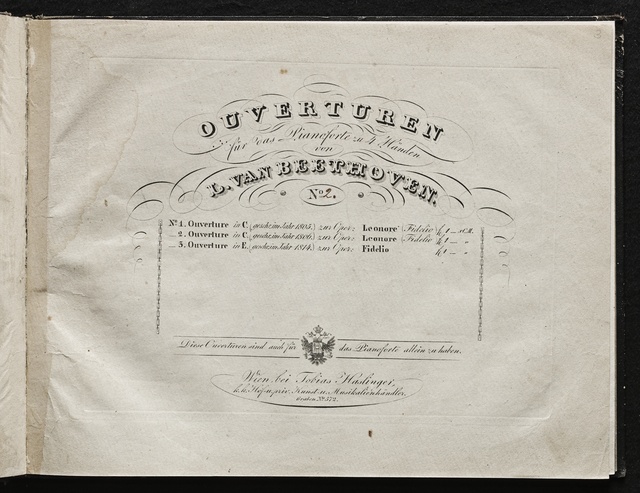 OUVERTUREN
für das Pianoforte zu 4 Händen
von
L. VAN BEETHOVEN.
No. 2.
No. 1. Ouverture in C, (geschr. im Jahr 1805,) zur Oper: Leonore (Fidelio) f. 1 —
— 2. Ouverture in C, (geschr. im Jahr 1806,) zur Oper: Leonore (Fidelio) f. 1 — "
— 3. Ouverture in E, (geschr. im Jahr 1814,) zur Oper: Fidelio f. 1 — "
Diese Ouvertüren sind auch für das Pianoforte allein zu haben.
Wien, bei Tobias Haslinger,
k. k. Hof- u. priv. Kunst- u. Musikalienhändler,
Graben No. 572.